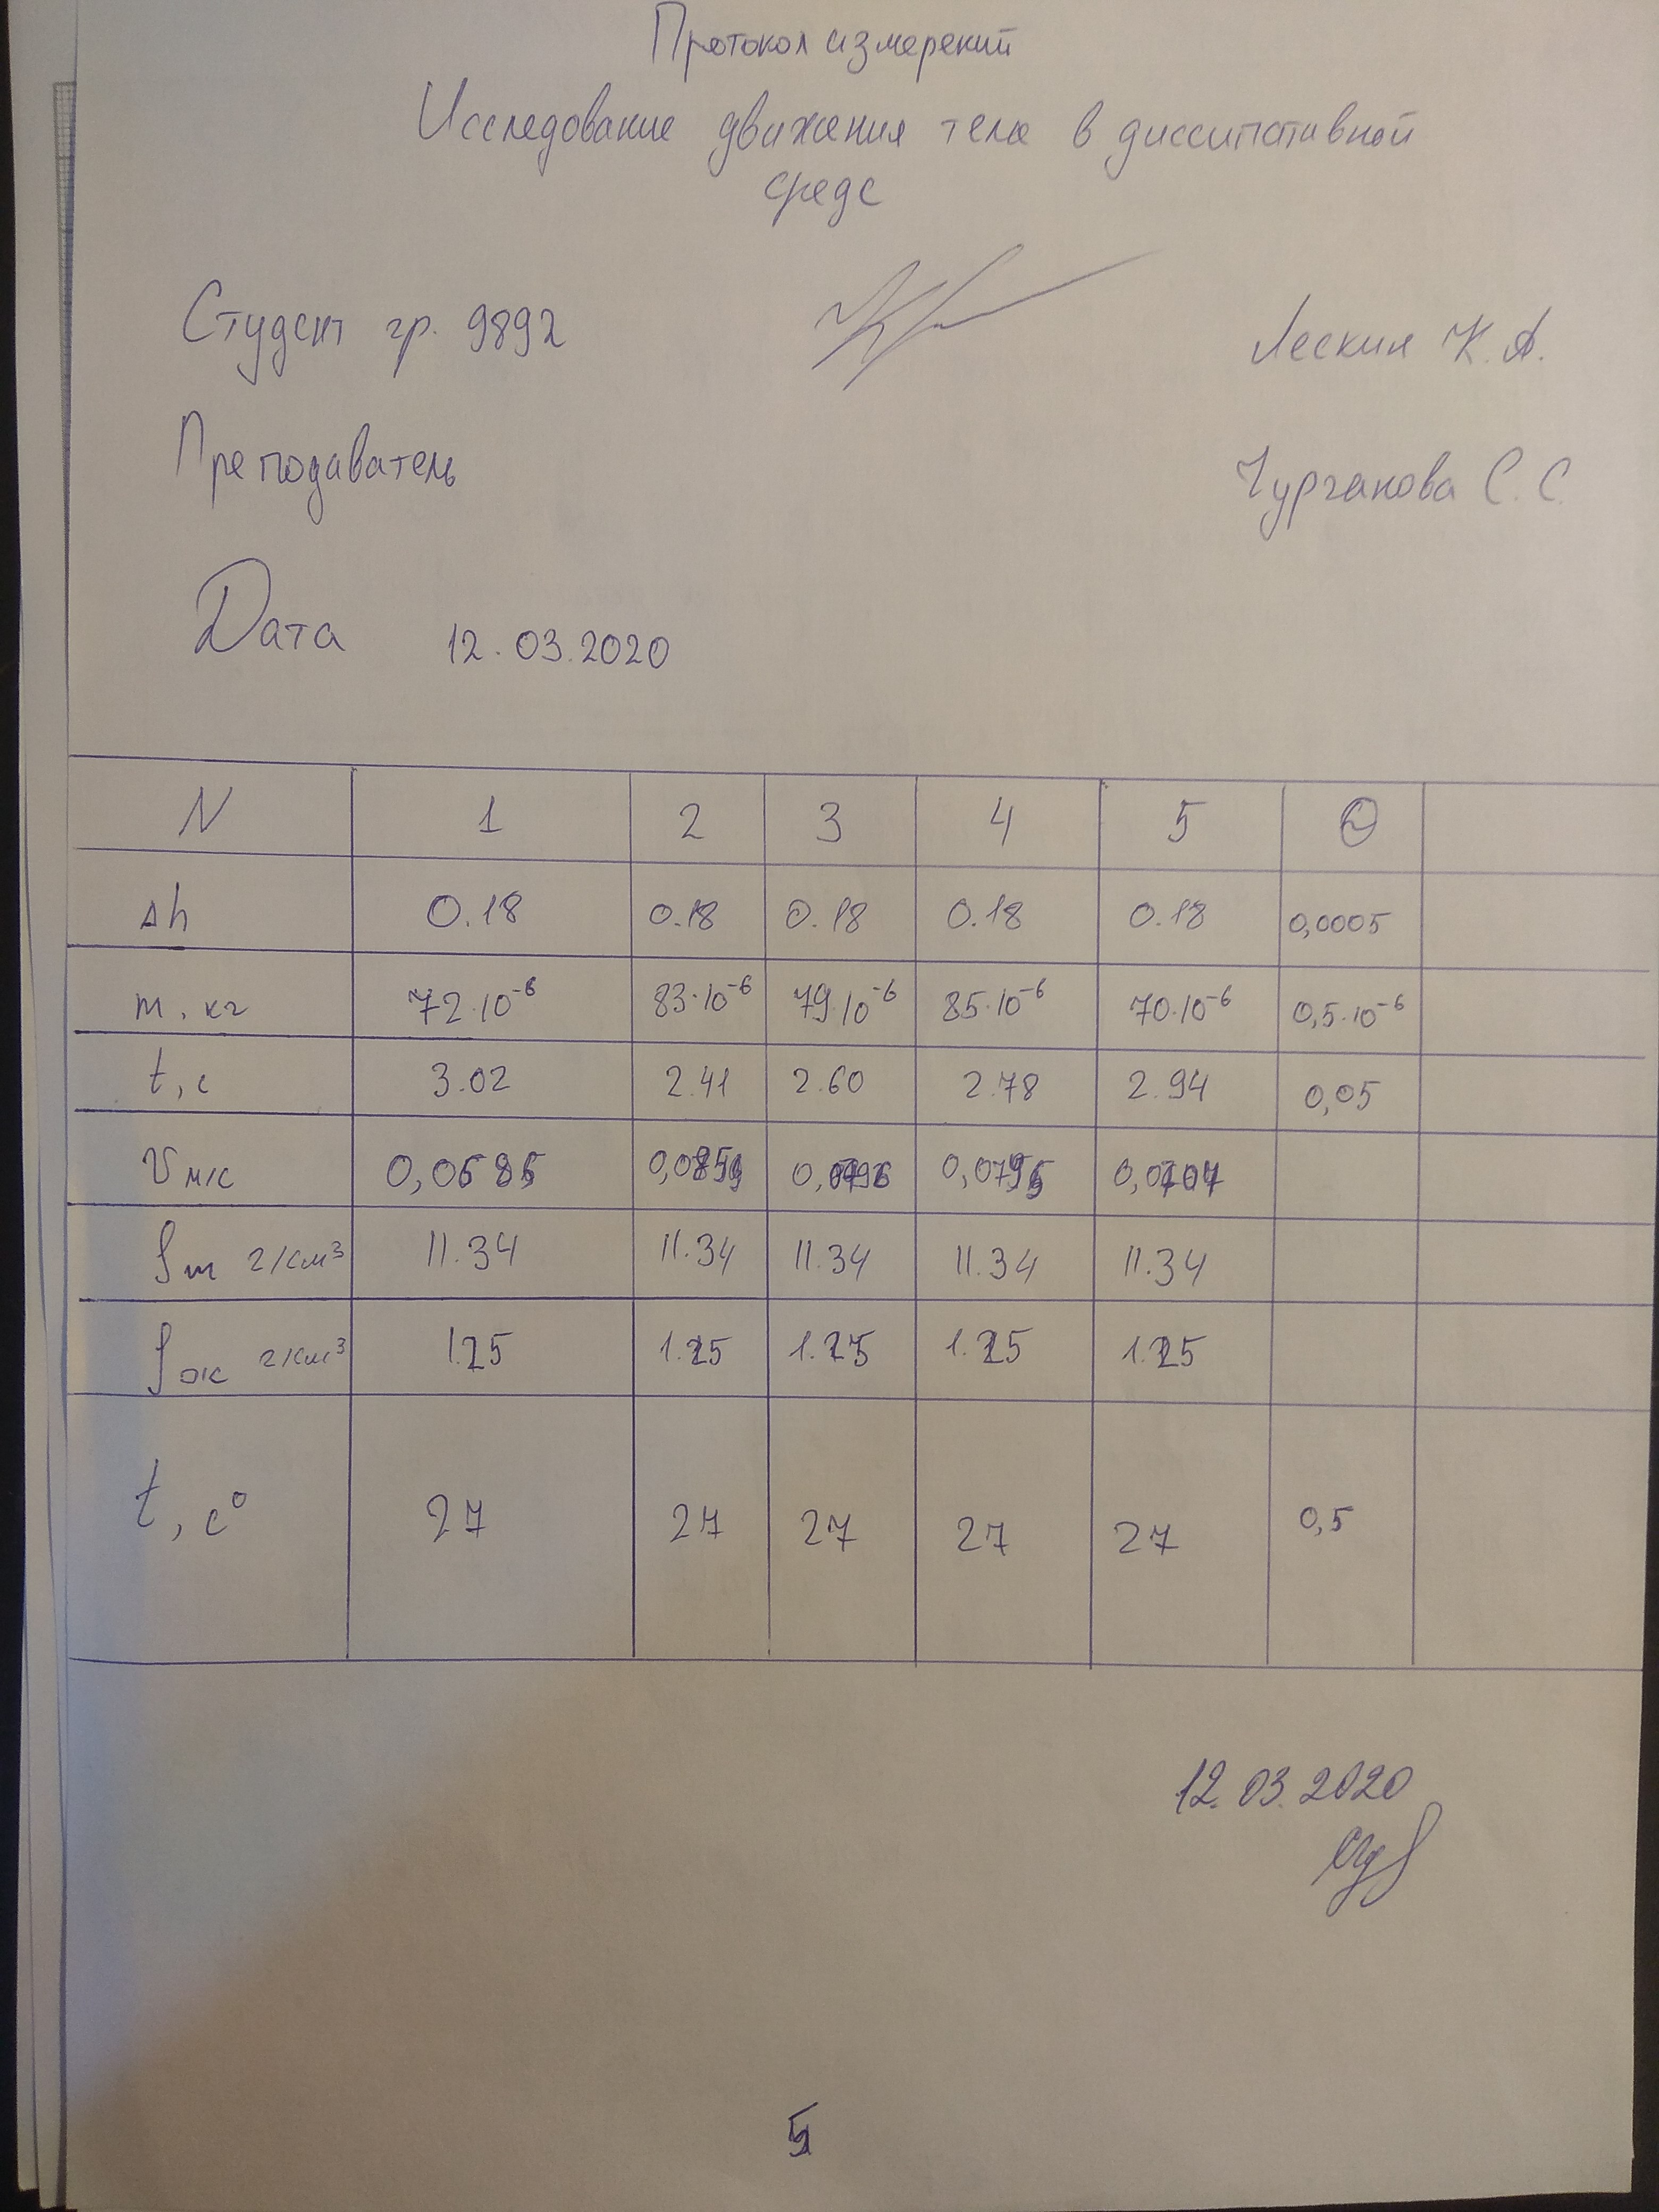 Протокол измерений
Исследование движения тела в диссипативной
среде
Студент гр. 9892 Лескин К. А.
Преподаватель Чурганова С. С.
Дата 12.03.2020
N 1 2 3 4 5 Θ
Δh 0.18 0.18 0.18 0.18 0.18 0,0005
m, кг 72·10⁻⁶ 83·10⁻⁶ 79·10⁻⁶ 85·10⁻⁶ 70·10⁻⁶ 0,5·10⁻⁶
t, c 3.02 2.41 2.60 2.78 2.94 0,05
υ м/с 0,0585
ρт г/см³ 11.34 11.34 11.34 11.34 11.34
ρж г/см³ 1.25 1.25 1.25 1.25 1.25
t, c° 27 27 27 27 27 0,5
12.03.2020